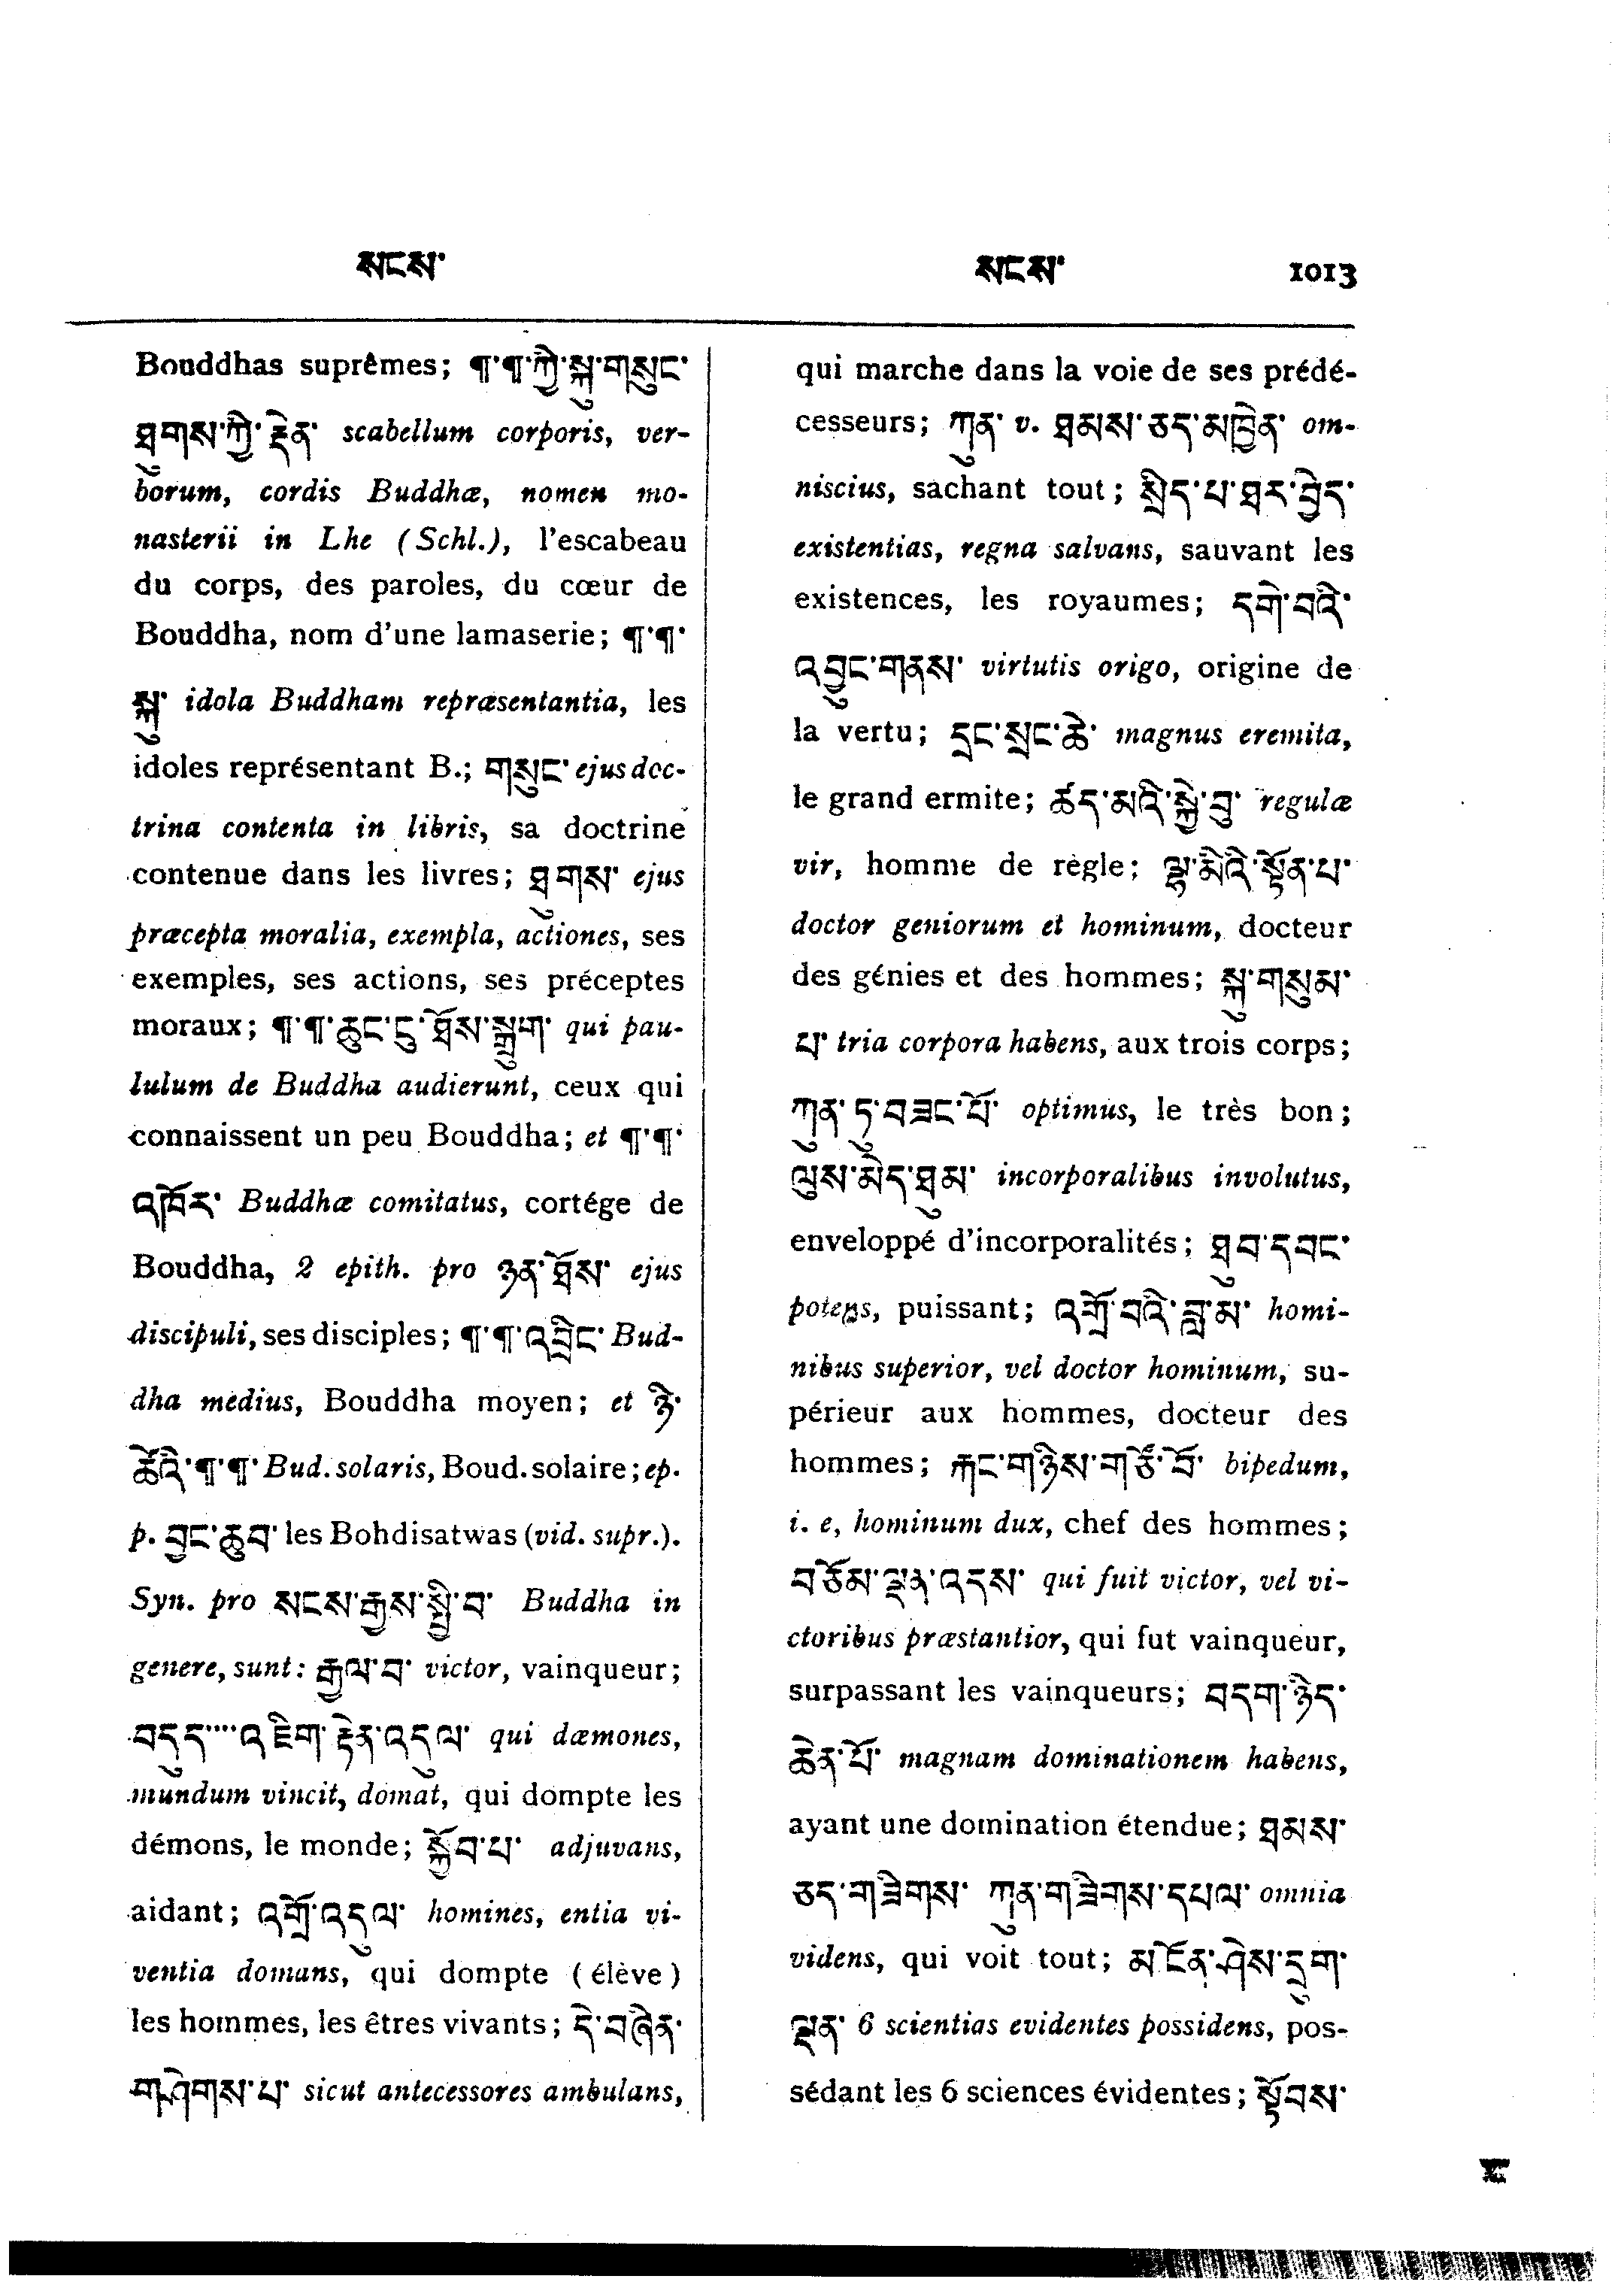 སངས་
སངས་ 1013
Bouddhas suprêmes; ¶་¶་ཀྱི་སྐུ་གསུང་
ཐུགས་ཀྱི་རྟེན་ scabellum corporis, ver-
borum, cordis Buddhæ, nomen mo-
nasterii in Lhe (Schl.), l'escabeau
du corps, des paroles, du cœur de
Bouddha, nom d'une lamaserie; ¶་¶་
སྐུ་ idola Buddham repræsentantia, les
idoles représentant B.; གསུང་ ejus doc-
trina contenta in libris, sa doctrine
contenue dans les livres; ཐུགས་ ejus
præcepta moralia, exempla, actiones, ses
exemples, ses actions, ses préceptes
moraux; ¶་¶་ཆུང་ངུ་ཐོས་སྒྲུག་ qui pau-
lulum de Buddha audierunt, ceux qui
connaissent un peu Bouddha; et ¶་¶་
འཁོར་ Buddhæ comitatus, cortége de
Bouddha, 2 epith. pro ཉན་ཐོས་ ejus
discipuli, ses disciples; ¶་¶་འབྲིང་ Bud-
dha medius, Bouddha moyen; et ཉི་
ཚེའི་¶་¶་ Bud. solaris, Boud. solaire; ep.
p. བྱང་ཆུབ་ les Bohdisatwas (vid. supr.).
Syn. pro སངས་རྒྱས་སྤྱི་བ་ Buddha in
genere, sunt: རྒྱལ་བ་ victor, vainqueur;
བདུད་...་འཇིག་རྟེན་འདུལ་ qui dæmones,
mundum vincit, domat, qui dompte les
démons, le monde; སྐྱོབ་པ་ adjuvans,
aidant; འགྲོ་འདུལ་ homines, entia vi-
ventia domans, qui dompte (élève)
les hommes, les êtres vivants; དེ་བཞིན་
གཤེགས་པ་ sicut antecessores ambulans,
qui marche dans la voie de ses prédé-
cesseurs; ཀུན་ v. ཐམས་ཅད་མཁྱེན་ om-
niscius, sachant tout; སྲིད་པ་ཐར་བྱེད་
existentias, regna salvans, sauvant les
existences, les royaumes; དགེ་བའི་
འབྱུང་གནས་ virtutis origo, origine de
la vertu; དྲང་སྲང་ཆེ་ magnus eremita,
le grand ermite; ཚད་མའི་སྐྱེ་བུ་ regulæ
vir, homme de règle; ལྷ་མིའི་སྟོན་པ་
doctor geniorum et hominum, docteur
des génies et des hommes; སྐུ་གསུམ་
པ་ tria corpora habens, aux trois corps;
ཀུན་ཏུ་བཟང་པོ་ optimus, le très bon;
ལུས་མེད་ཐུམ་ incorporalibus involutus,
enveloppé d'incorporalités; ཐུབ་དབང་
potens, puissant; འགྲོ་བའི་བླ་མ་ homi-
nibus superior, vel doctor hominum, su-
périeur aux hommes, docteur des
hommes; རྐང་གཉིས་གཙོ་བོ་ bipedum,
i. e, hominum dux, chef des hommes;
བཅོམ་ལྡན་འདས་ qui fuit victor, vel vi-
ctoribus præstantior, qui fut vainqueur,
surpassant les vainqueurs; བདག་ཉིད་
ཆེན་པོ་ magnam dominationem habens,
ayant une domination étendue; ཐམས་
ཅད་གཟིགས་ ཀུན་གཟིགས་དཔལ་ omnia
videns, qui voit tout; མངོན་ཤེས་དྲུག་
ལྡན་ 6 scientias evidentes possidens, pos-
sédant les 6 sciences évidentes; སྟོབས་